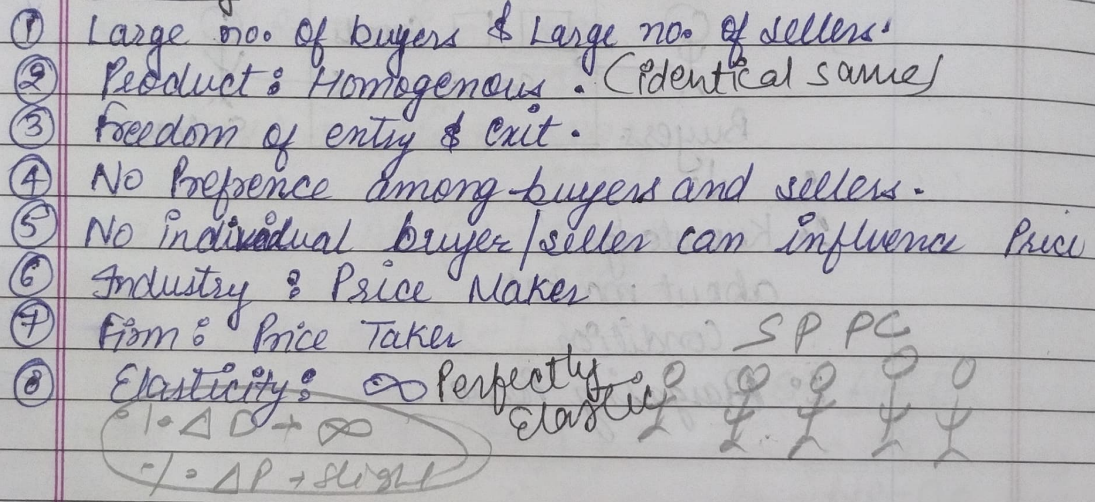 ① Large no. of buyers & Large no. of sellers.
② Product : Homogenous . (identical same)
③ Freedom of entry & exit.
④ No Prefrence among buyers and sellers.
⑤ No individual buyer/seller can influence Price
⑥ Industry : Price Maker
⑦ Firm : Price Taker S P PC
⑧ Elasticity : ∞ Perfectly
Elastic
%. Δ D → ∞
%. Δ P → slight